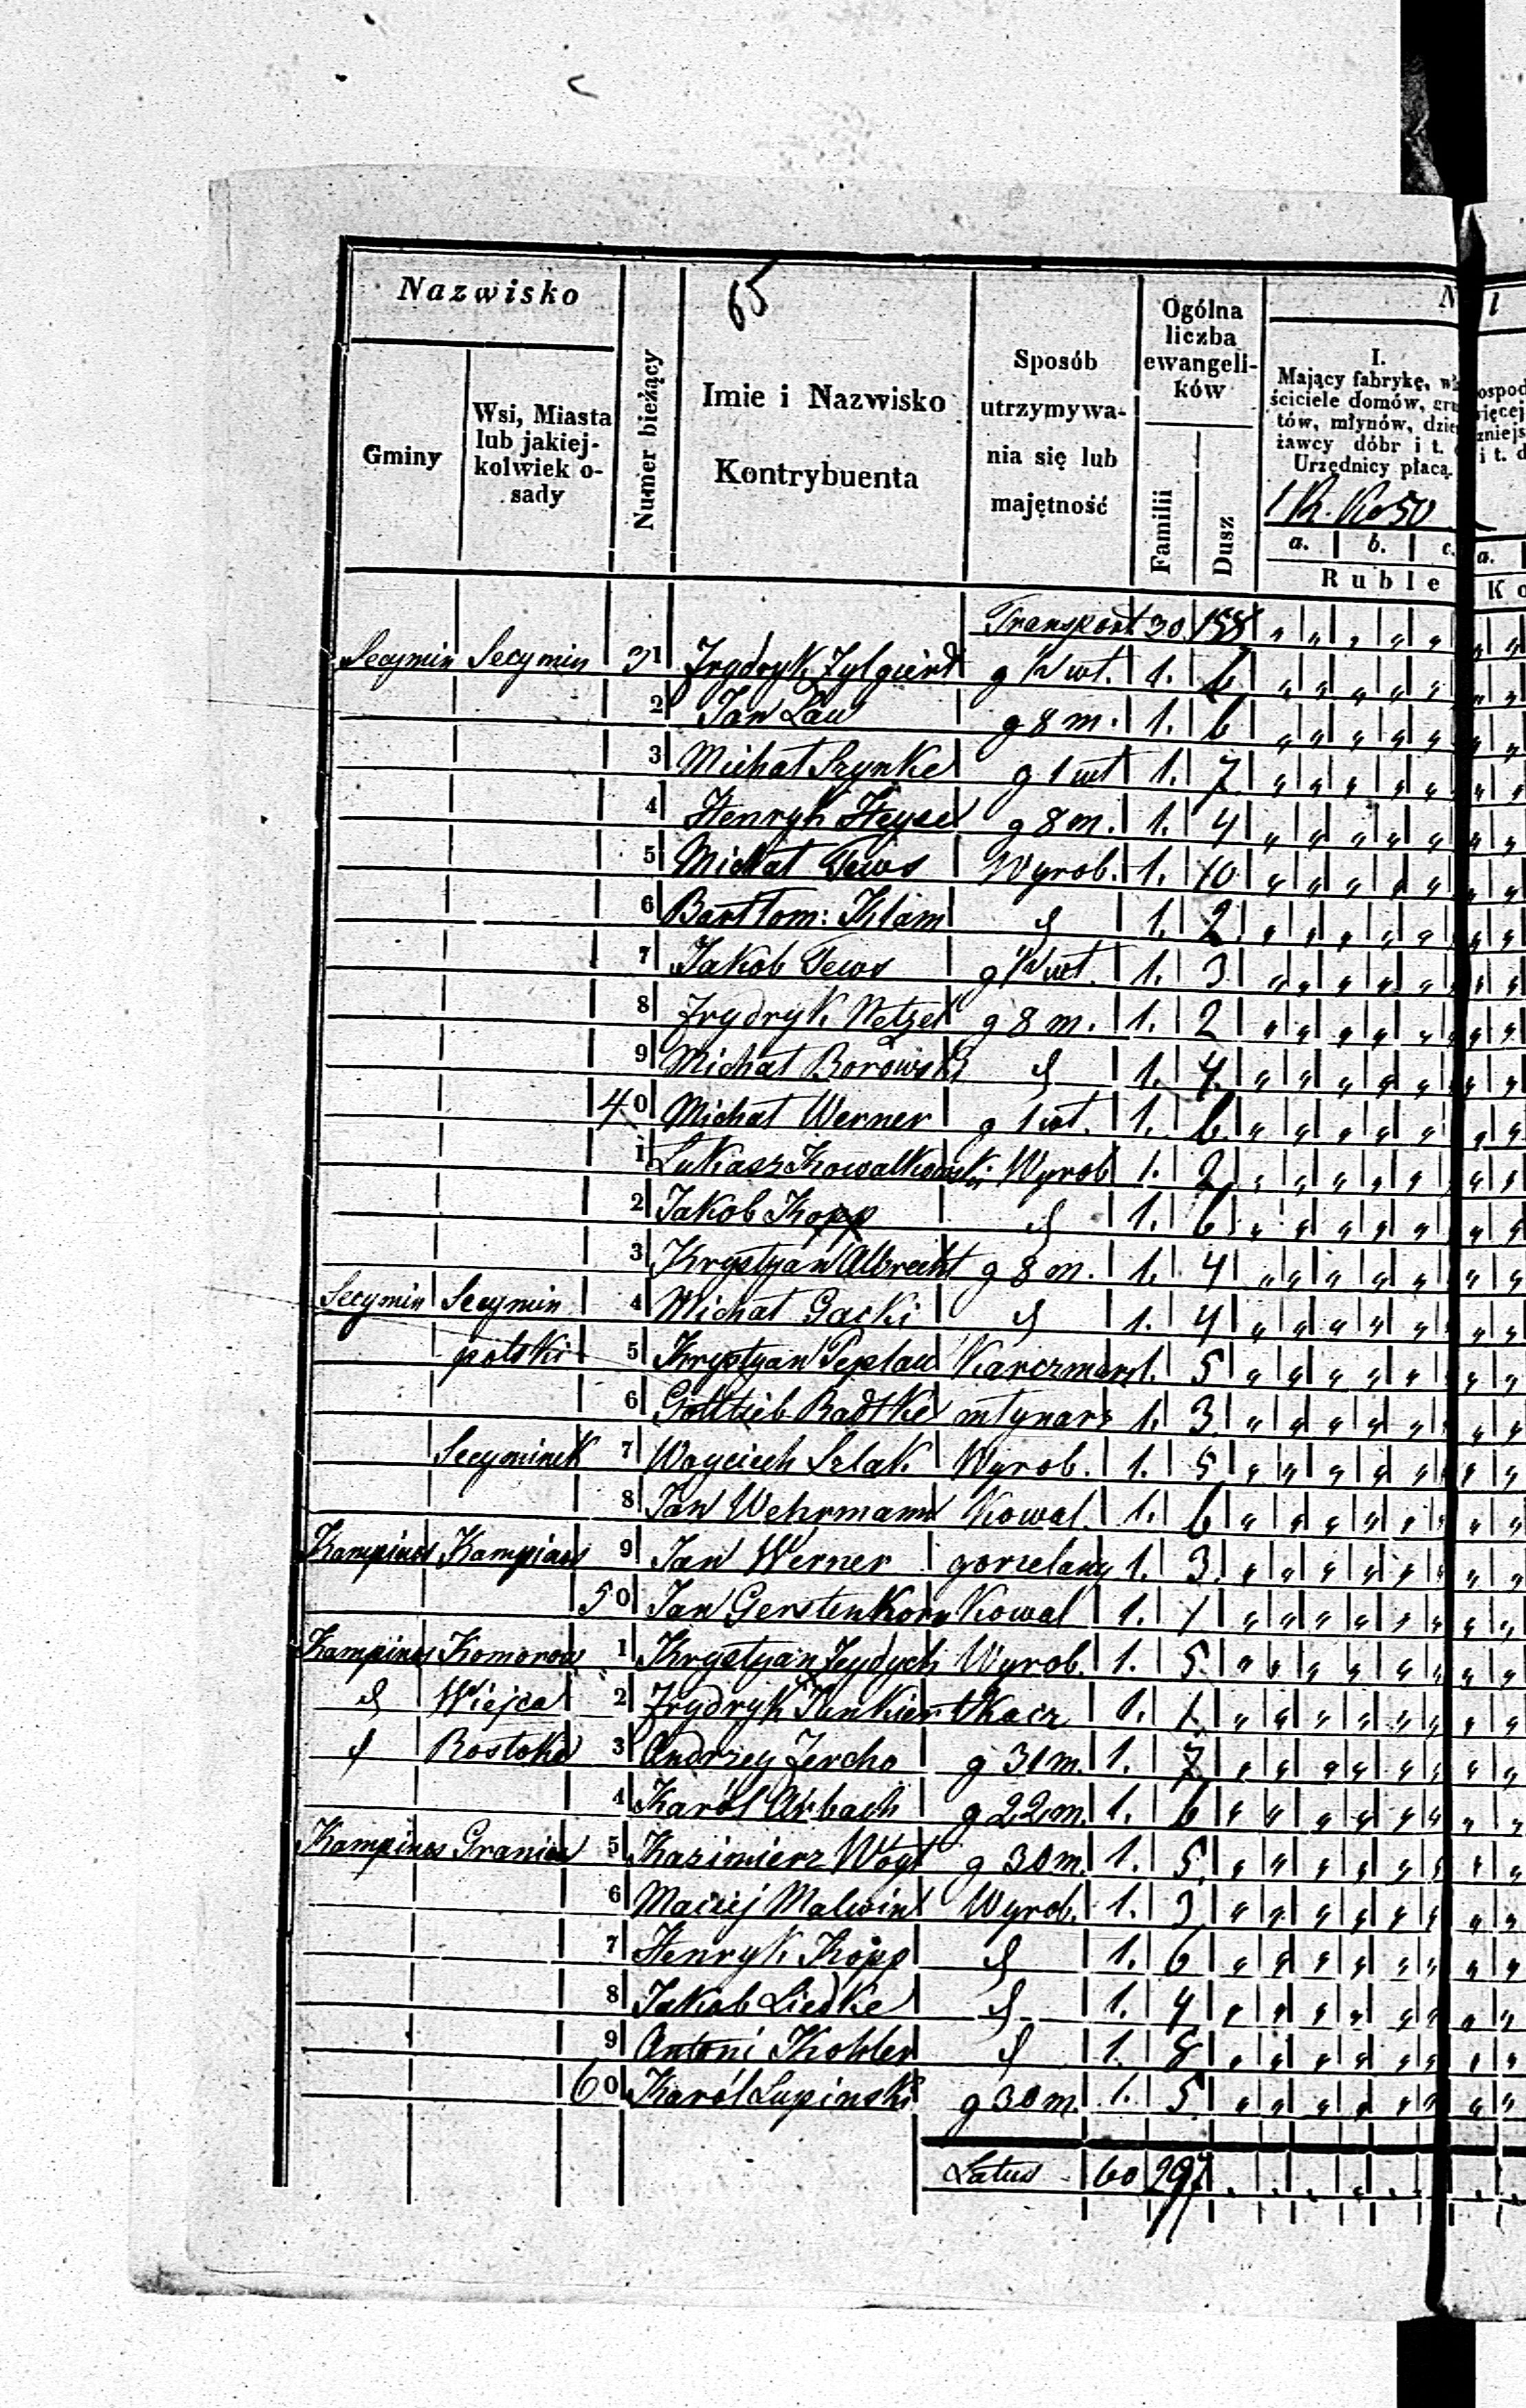 65
Nazwisko
Gminy
Wsi, Miasta lub jakiej- kolwiek o- sady
Numer bieżący
Imie i Nazwisko Kontrybuenta
Sposób utrzymywa- nia się lub majętność
Ogólna liczba ewangeli- ków
Familii
Dusz
I.
Mający fabrykę,
ściciele domów,
tów, młynów,
żawcy dóbr i t.
Urzędnicy płacą
a. b. c. a.
Ruble
Transport 30
Secymin Secymin 31 Frydryk Zylgierd g 1/2 wł. 1. 6
2 Jan Lau g 8 m. 1. 6
3 Michał Szynkel g 1 wł 1. 7
4 Henryk Heyse g 8 m. 1. 4
5 Michał Tews Wyrob. 1. 10
6 Bartłom: Klam d 1. 2
7 Jakob Tews g 1/2 wł. 1. 3
8 Frydryk Netzel g 8 m. 1. 2
9 Michał Borowski d 1. 4
40 Michał Werner g 1 wł. 1. 6
1 Łukasz Kowalkowski Wyrob 1. 2
2 Jakob Kopp d 1. 6
3 Krystyan Albrecht g 8 m. 1. 4
Secymin Secymin 4 Michał Gacki d 1. 4
polski 5 Krystyan Peplau Karczmarz 1. 5
6 Gottlieb Radtke młynarz 1. 3
Secyminek 7 Woyciech Szlak Wyrob. 1. 5
8 Jan Wehrmann Kowal. 1. 6
Kampinos Kampinos 9 Jan Werner gorzelany 1. 3
50 Jan Gerstenkorn Kowal 1. 1
Kampinos Komorow 1 Krystyan Zeydych Wyrob. 1. 5
d Wiejca 2 Frydryk tkacz 1. 1
d Rostoka 3 Andrzey Zercho g 31 m. 1. 7
4 Karól Arbach g 22 m. 1. 6
Kampinos Granica 5 Kazimierz Wógt g 30 m. 1. 5
6 Maciej Malwin Wyrob. 1. 3
7 Henryk Kopp d 1. 6
8 Jakob Liedke d 1. 4
9 Antoni Kohler d 1. 8
60 Karól Lupinski g 30 m. 1. 5
Latus 60 297